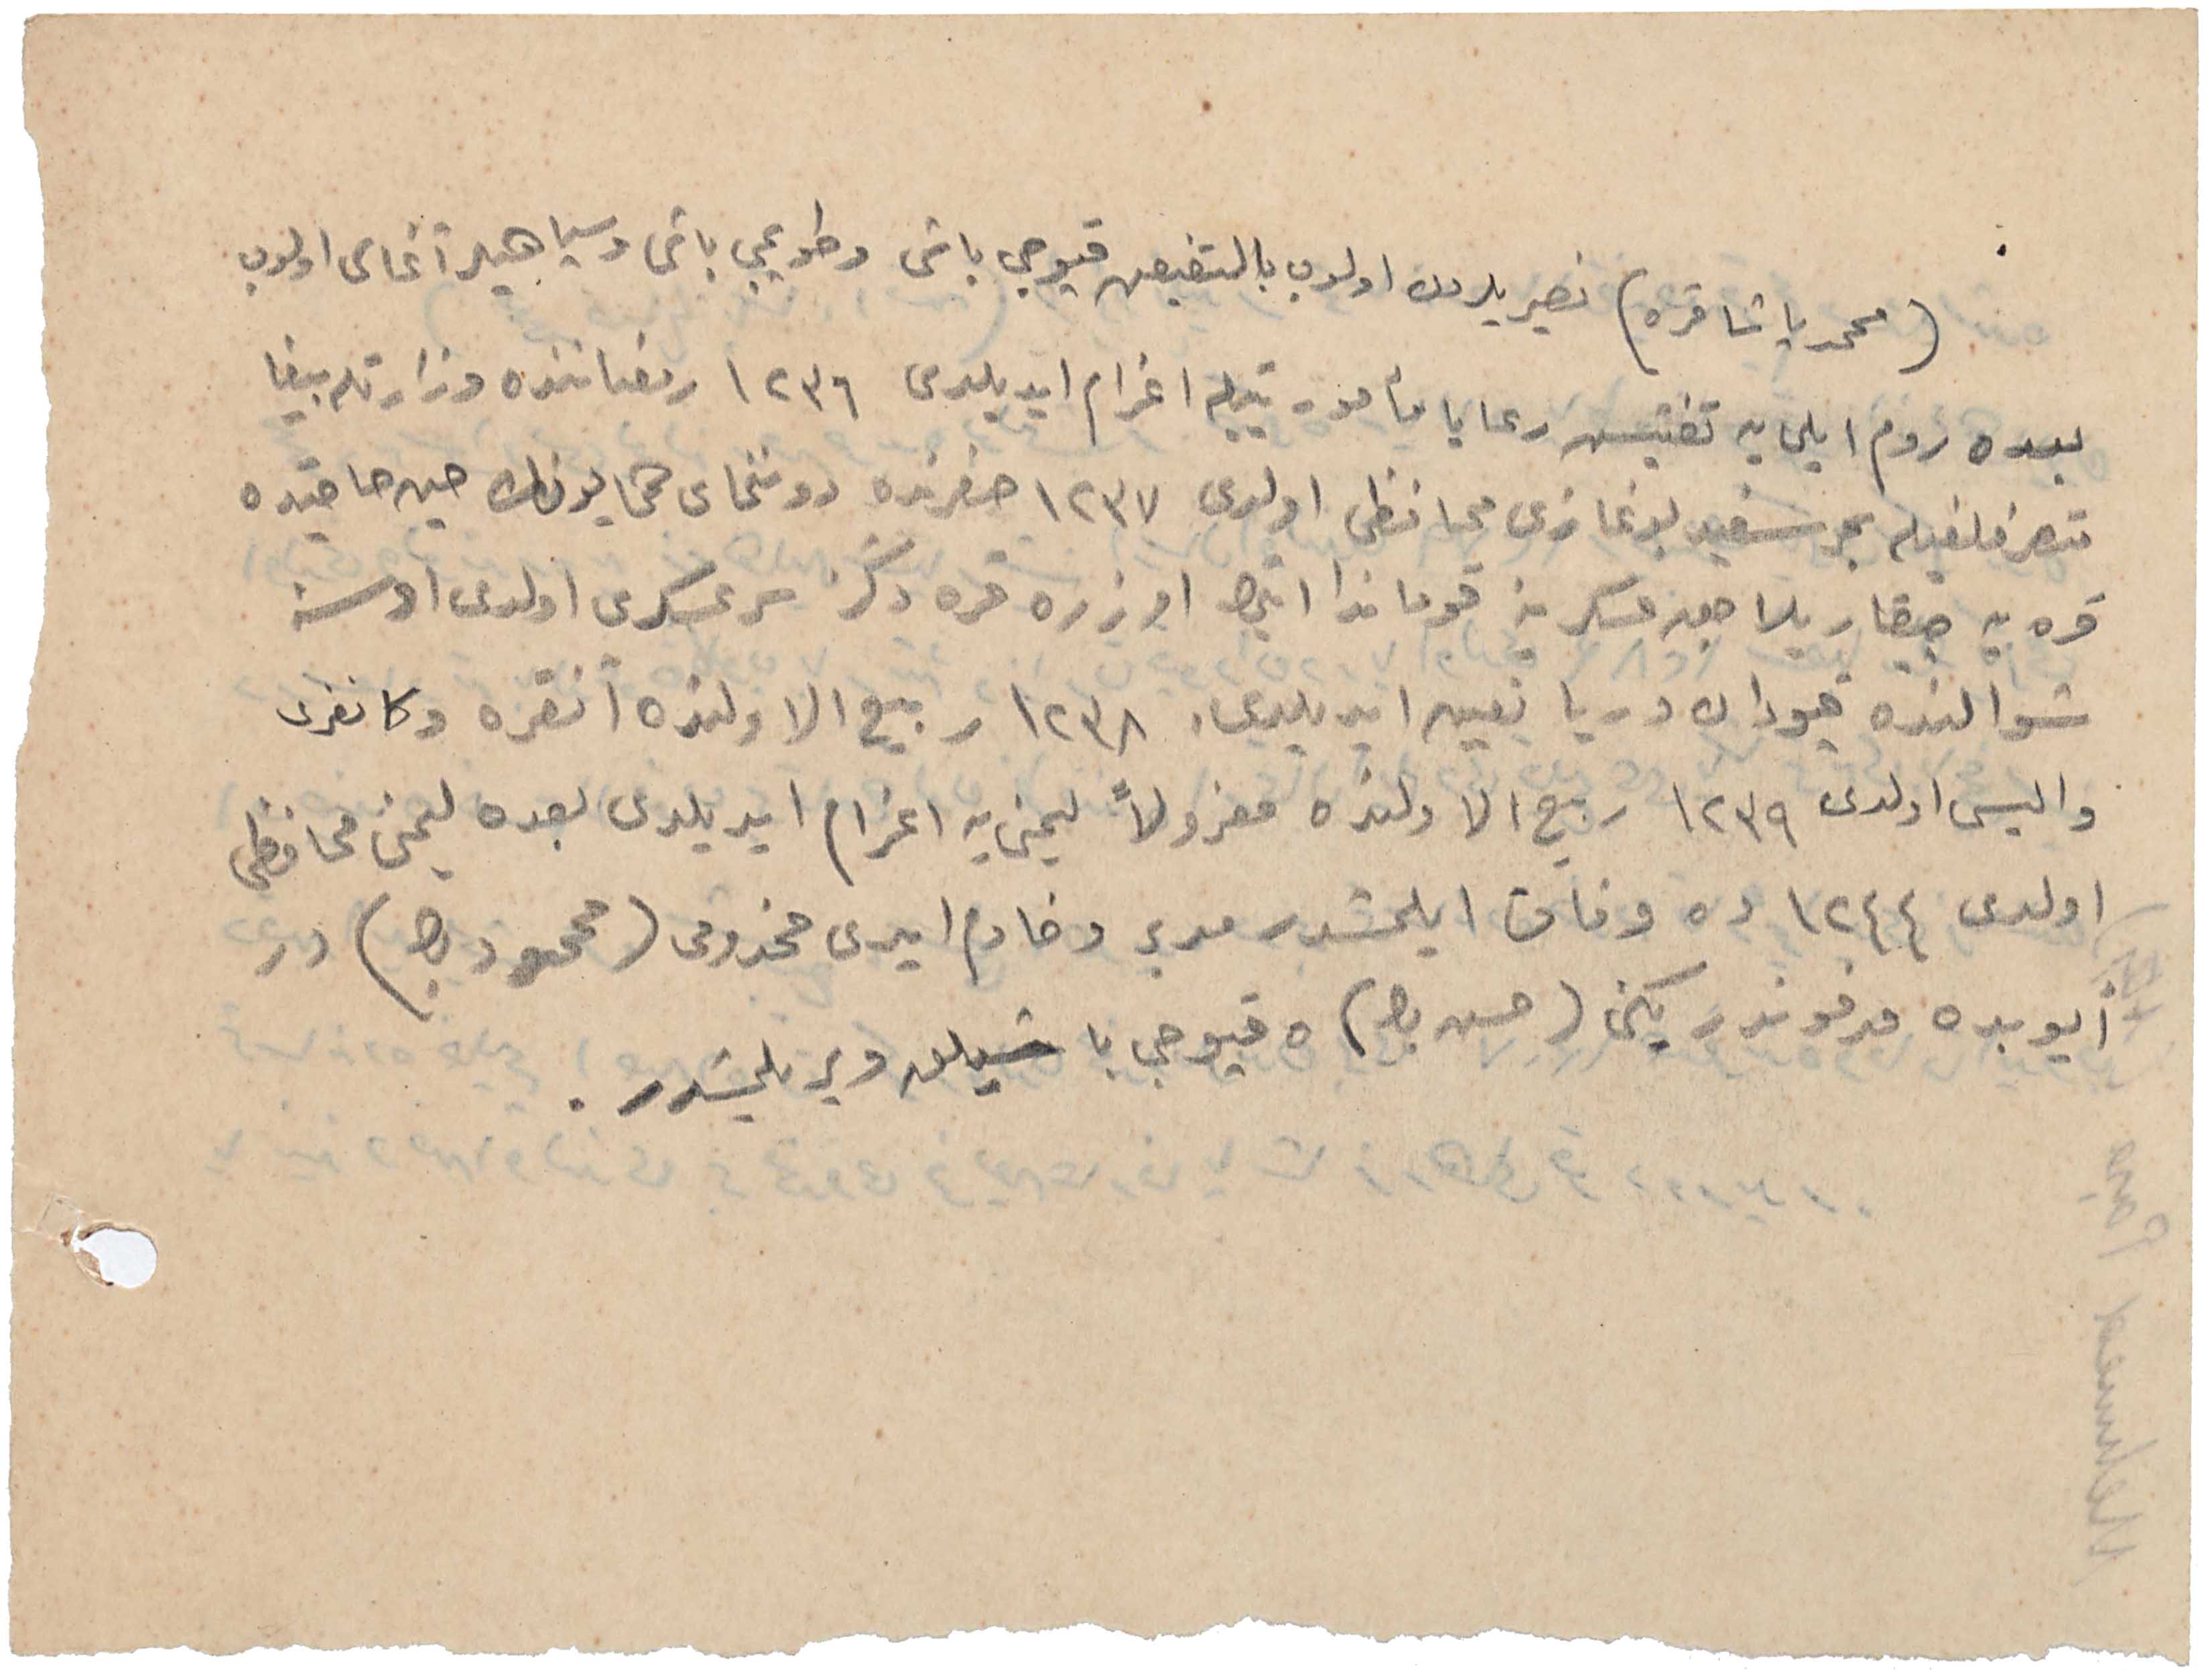 (محمد پاشا قره) نصیریلردن اولوب بالتفیض قپوجی باشی وطوپجی باشی وسپاهیلر آغاسی اولوب
بعده روم ایلی یه تفتیش رعایا مأموریتیله اعزام ایدیلدی ١٢٣٦ رمضاننده وزارتله بیغا
متصرفلغیله بحر سفید بوغازی محافظی اولدی ١٢٣٧ صفرنده دوننمای همایونك
قره یه چیقاریلاجق عسکرینه قوماندا ایتمك اوزره قره دکز سرعسکری اولدی او سنه
شوالنده قپودان دریا تعیین ایدیلدی، ١٢٣٨ ربیع الاولنده آنقره وکانغری
والیسی اولدی ١٢٣٩ ربیع الاولنده معزولاً لیمنی یه اعزام ایدیلدی بعده لیمنی محافظی
اولدی ١٢٤٤ ده وفات ایلمشدر مدبر وخادم ایدی مخدومی (محمود بك) در
أیوبده مدفوندر یکنی (حسن بك) ه قپوجی باشیلق ویرلمشدر.